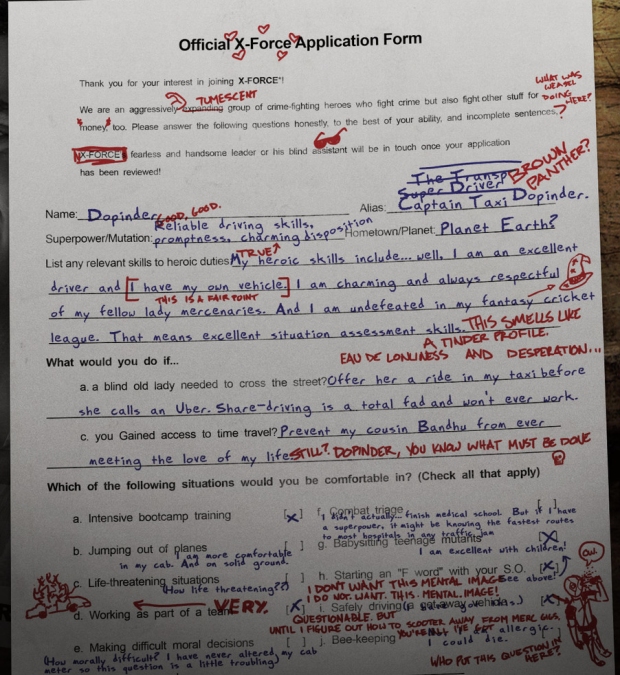 Official X-Force Application Form
Thank you for your interest in joining X-FORCE"!
TUMESCENT
WHAT WAS
WEASEL
DOING
HERE?
We are an aggressively expanding group of crime-fighting heroes who fight crime but also fight other stuff for
money, too. Please answer the following questions honestly, to the best of your ability, and incomplete sentences. ?
X-FORCE's fearless and handsome leader or his blind assistant will be in touch once your application
has been reviewed!
BROWN
PANTHER?
The Transp
Super Driver
Name: Dopinder GOOD, GOOD. Alias: Captain Taxi Dopinder.
Reliable driving skills,
Superpower/Mutation: promptness, charming disposition Hometown/Planet: Planet Earth?
TRUE
List any relevant skills to heroic duties: My heroic skills include... well, I am an excellent
driver and [I have my own vehicle.] I am charming and always respectful
THIS IS A FAIR POINT
of my fellow lady mercenaries. And I am undefeated in my fantasy cricket
league. That means excellent situation assessment skills. THIS SMELLS LIKE
A TINDER PROFILE.
EAU DE LONLINESS AND DESPERATION...
What would you do if...
a. a blind old lady needed to cross the street? Offer her a ride in my taxi before
she calls an Uber. Share-driving is a total fad and won't ever work.
c. you Gained access to time travel? Prevent my cousin Bandhu from ever
meeting the love of my life STILL? DOPINDER, YOU KNOW WHAT MUST BE DONE
Which of the following situations would you be comfortable in? (Check all that apply)
a. Intensive bootcamp training [X]
f. Combat triage [ ]
I didn't actually... finish medical school. But if I have
a superpower, it might be knowing the fastest routes
to most hospitals in any traffic jam
b. Jumping out of planes [ ]
I am more comfortable
in my cab. And on solid ground.
g. Babysitting teenage mutants [X]
I am excellent with children!
OUI.
c. Life-threatening situations [ ]
(How life threatening??)
h. Starting an "F word" with your S.O. [X]
See above!
I DON'T WANT THIS MENTAL IMAGE
I DO NOT. WANT. THIS. MENTAL. IMAGE!
d. Working as part of a team [X]
VERY.
i. Safely driving (a getaway vehicle) [X]
QUESTIONABLE. BUT
UNTIL I FIGURE OUT HOW TO SCOOTER AWAY FROM MERC GIGS,
YOU'RE ALL I'VE GOT
e. Making difficult moral decisions [ ]
(How morally difficult? I have never altered my cab
meter so this question is a little troubling)
j. Bee-keeping [ ]
allergic..
I could die.
WHO PUT THIS QUESTION IN
HERE?